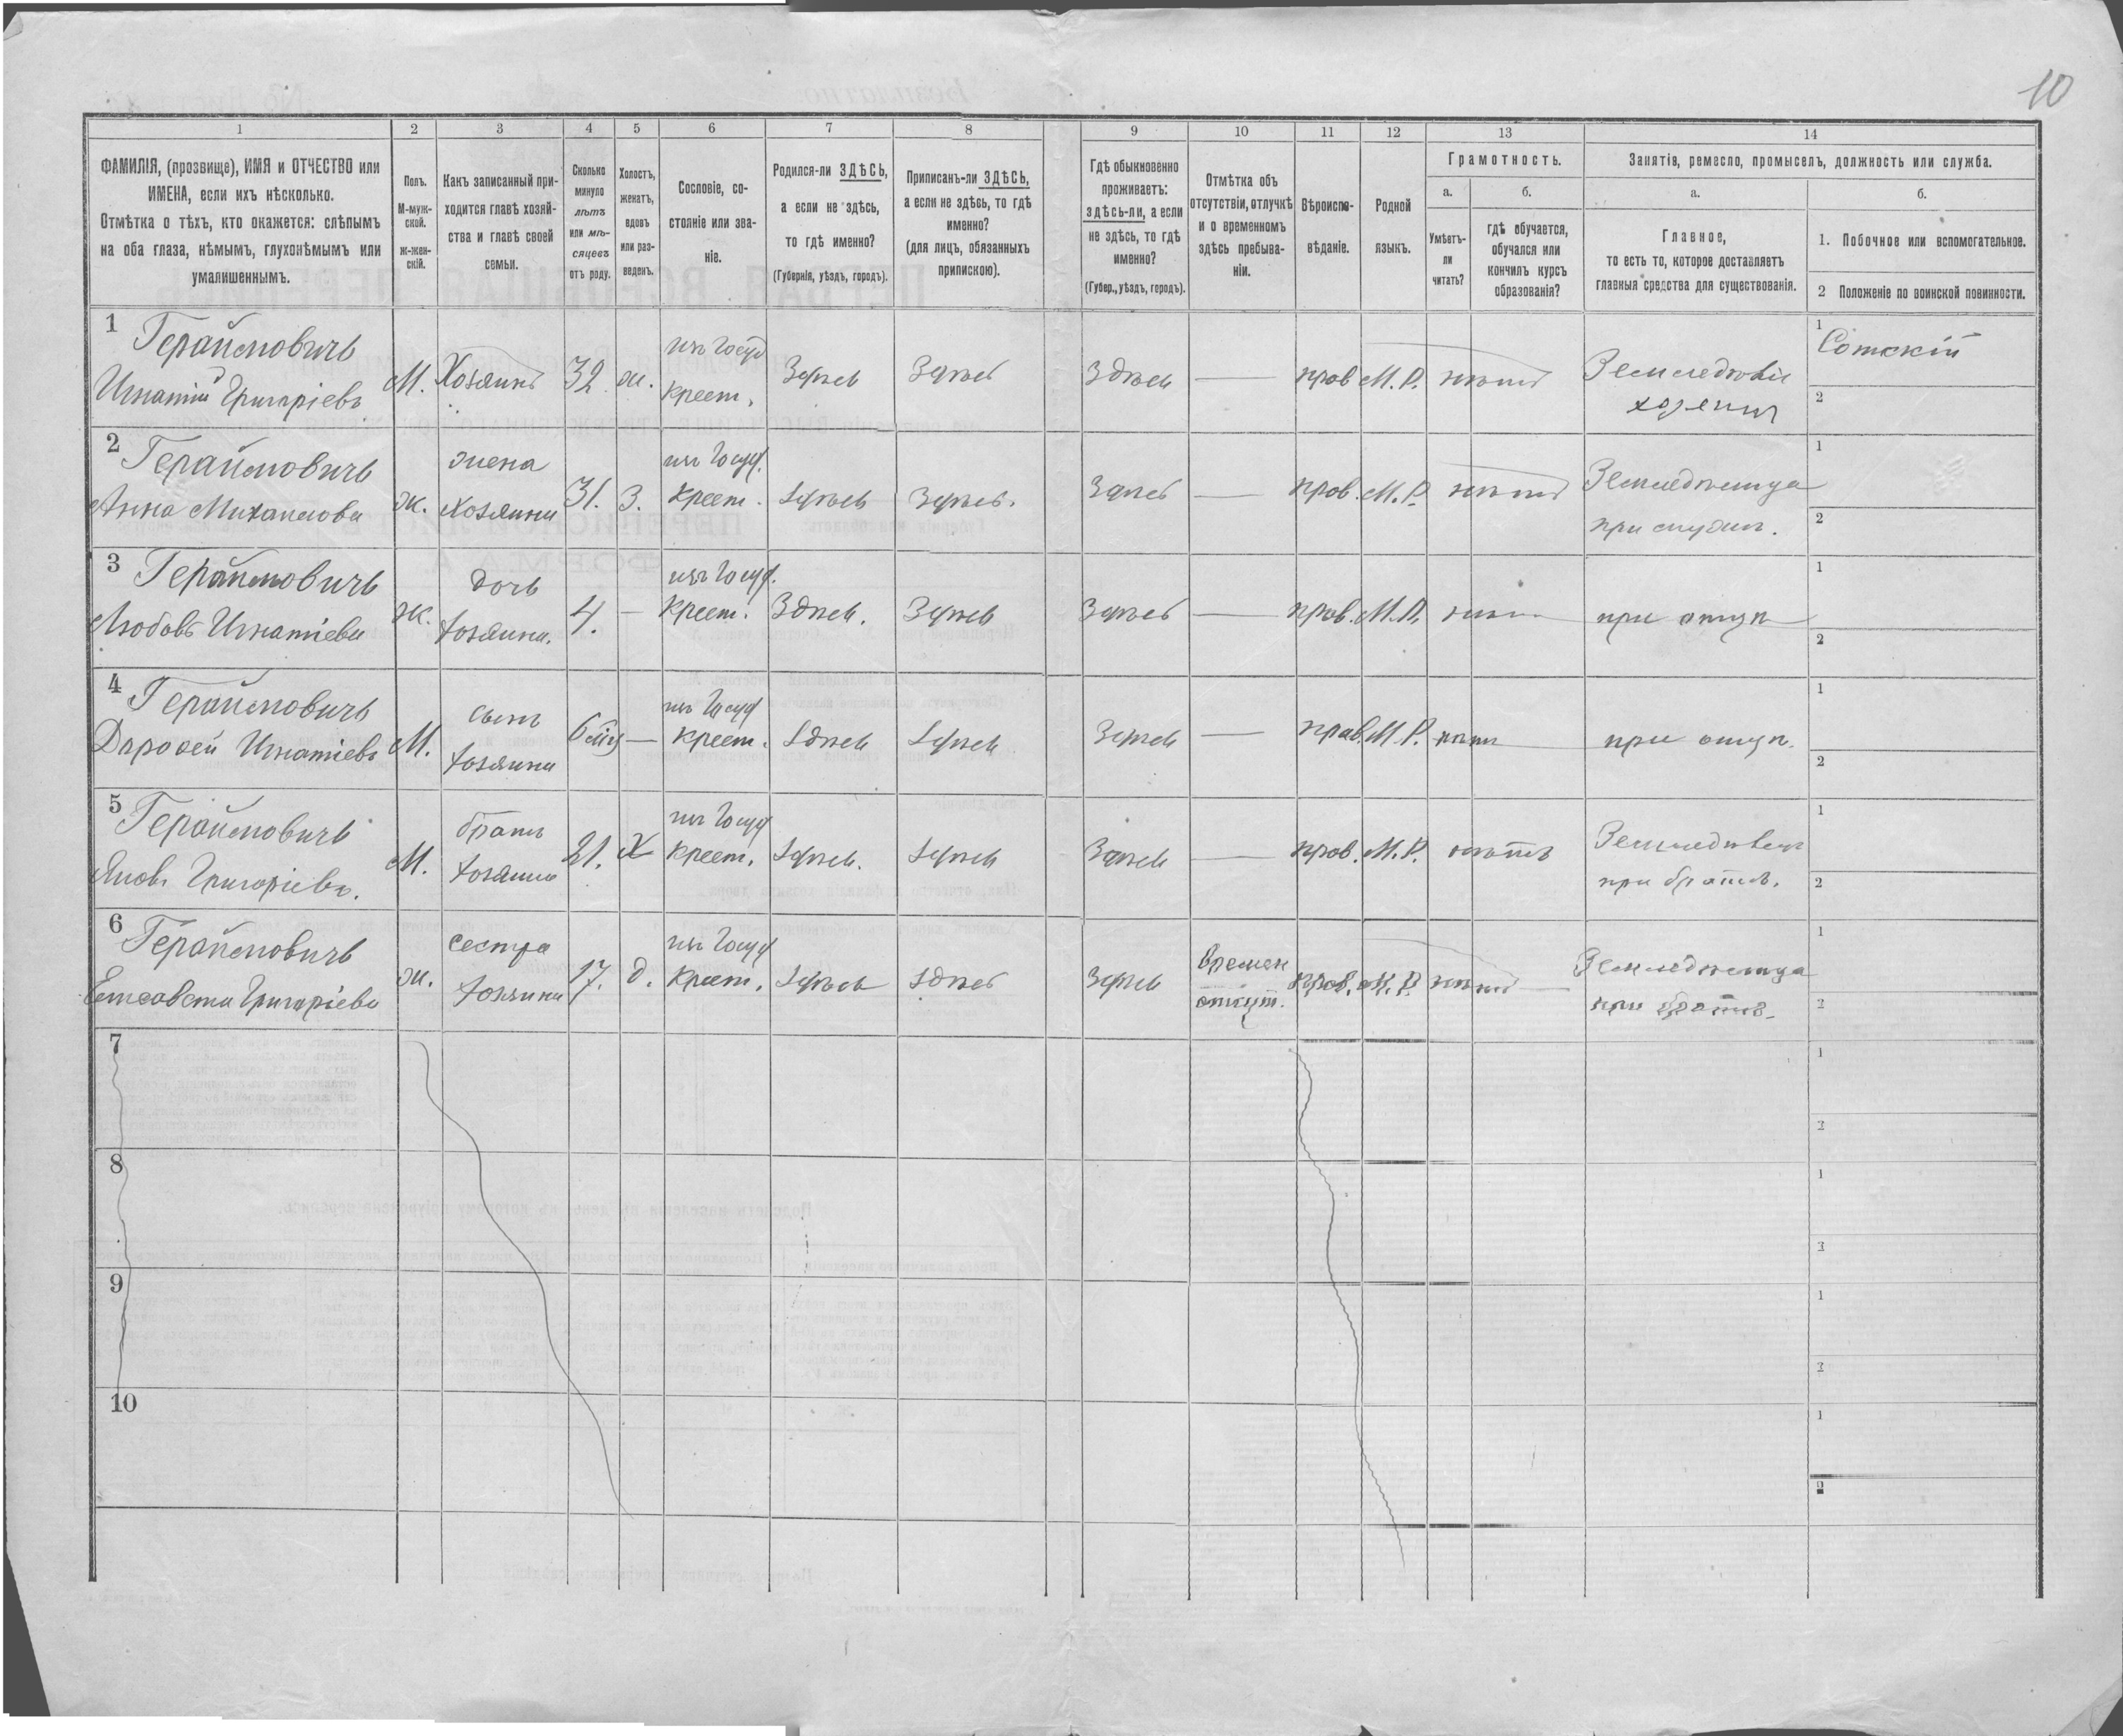 10
1 2 3 4 5 6 7 8 9 10 11 12 13 14
ФАМИЛІЯ, (прозвище), ИМЯ и ОТЧЕСТВО или
ИМЕНА, если ихъ нѣсколько.
Отмѣтка о тѣхъ, кто окажется: слѣпымъ
на оба глаза, нѣмымъ, глухонѣмымъ или
умалишеннымъ.
Полъ.
М-муж-
ской.
ж-жен-
скій.
Какъ записанный при-
ходится главѣ хозяй-
ства и главѣ своей
семьи.
Сколько
минуло
лѣтъ
или мѣ-
сяцевъ
отъ роду.
Холостъ,
женатъ,
вдовъ
или раз-
веденъ.
Сословіе, со-
стояніе или зва-
ніе.
Родился-ли ЗДѢСЬ,
а если не здѣсь,
то гдѣ именно?
(Губернія, уѣздъ, городъ).
Приписанъ-ли ЗДѢСЬ,
а если не здѣсь, то гдѣ
именно?
(для лицъ, обязанныхъ
припискою).
Гдѣ обыкновенно
проживаетъ:
здѣсь-ли, а если
не здѣсь, то гдѣ
именно?
(Губер., уѣздъ, городъ).
Отмѣтка объ
отсутствіи, отлучкѣ
и о временномъ
здѣсь пребыва-
ніи.
Вѣроиспо-
вѣданіе.
Родной
языкъ.
Грамотность.
а.
Умѣетъ-
ли
читать?
б.
гдѣ обучается,
обучался или
кончилъ курсъ
образованія?
Занятія, ремесло, промыселъ, должность или служба.
а.
Главное,
то есть то, которое доставляетъ
главныя средства для существованія.
б.
1. Побочное или вспомогательное.
2 Положеніе по воинской повинности.
1 Гераймовичъ
Игнатій Григоріевъ
М. Хозяинъ 32 ж.
изъ Госуд
Крест.
Здѣсь Здѣсь Здѣсь — прав М.Р. нѣтъ
Земледѣліе
хозяинъ
1 Сотскій
2
2 Гераймовичъ
Анна Михаилова
ж.
жена
Хозяина
31. З.
изъ Госуд.
Крест.
Здѣсь Здѣсь. Здѣсь — прав. М.Р. нѣтъ
при мужѣ.
1
2
3 Гераймовичъ
Любовь Игнатіева
ж.
дочь
Хозяина.
4. —
изъ Госуд.
Крест.
Здѣсь. Здѣсь Здѣсь — прав. М.Р. нѣтъ
при отцѣ
1
2
4 Гераймовичъ
Дарофей Игнатіевъ
М.
сынъ
Хозяина
—
изъ Госуд
Крест.
Здѣсь Здѣсь Здѣсь — прав. М.Р. нѣтъ
при отцѣ.
1
2
5 Гераймовичъ
Яковъ Григоріевъ.
М.
братъ
Хозяина
21. Х
изъ Госуд
Крест.
Здѣсь. Здѣсь Здѣсь — прав. М.Р. нѣтъ
при братѣ.
1
2
6 Гераймовичъ
Елисавета Григоріева
ж.
сестра
Хозяина
17. д.
изъ Госуд
Крест.
Здѣсь Здѣсь Здѣсь
Времен
отсут.
прав. М.Р. нѣтъ —
при братѣ.
1
2
7
1
2
8
1
2
9
1
2
10
1
2